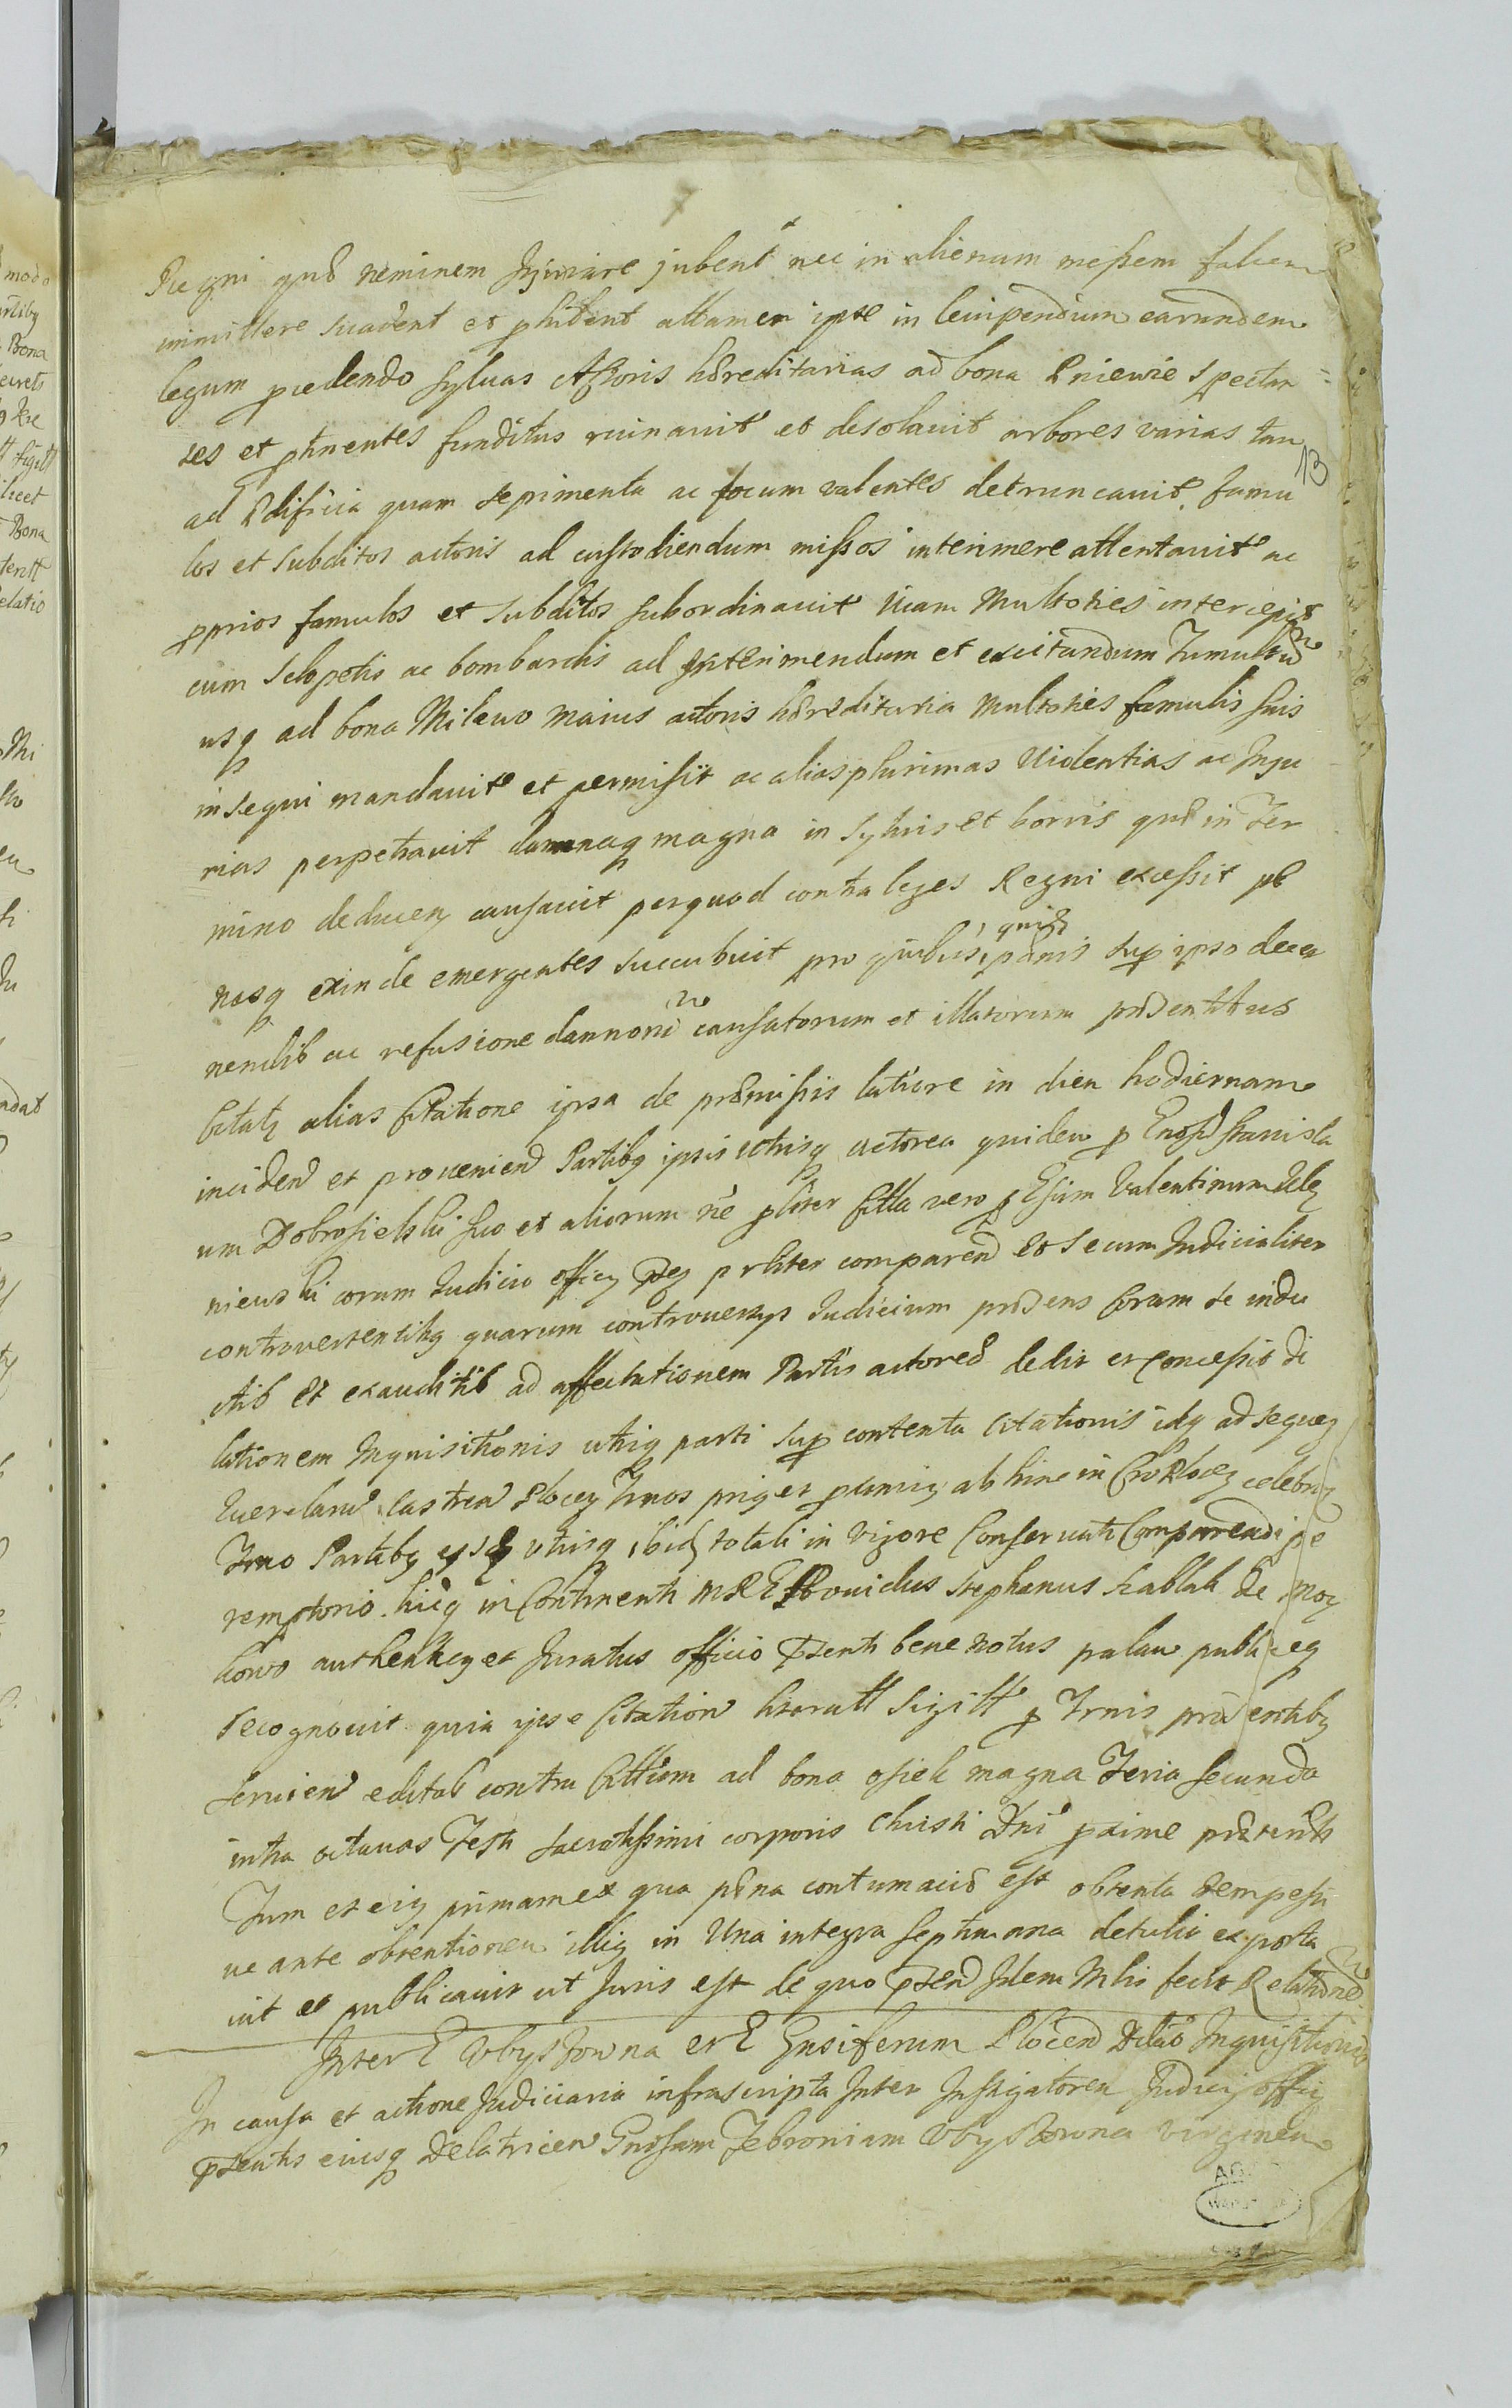 Regni quæ neminem Injuriare jubent nec in alienum messem falcem
immittere suadent et phibent attamen ipse in levipendium earundem
legum pcellendo sylvas Actoris hæreditarias ad bona Pniewie spectan
tes et ptinentes funditus ruinavit et desolavit arbores varias tam
13
ad Ædificia quam sepimenta ac focum valentes detruncavit, famu
los et subditos actoris ad custodiendum missos interimere attentavit ac
pprios famulos et subditos subordinavit viam Multoties intercepit
cum sclopetis ac bombardis ad Interimendum et excitandum Tumultum
usq ad bona Milewo maius actoris hæreditaria multoties famulis suis
insequi mandavit et permisit ac alias plurimas violentias ac Inju
rias perpetravit damnaq magna in sylvis et borris quæ in Ter
mino deducen causavit per quod contra leges Regni excessit pœ
nasq exinde emergentes succubuit pro quibus, quidem pœnis sup ipso decer
nendis ac refusione damnorum causatorum et illatorum præsentibus
Citatq alias Citatione ipsa de præmissis latiore in diem hodiernam
inciden et provenien Partibq ipsis utrisq actorea quidem p Enosum Stanisla
um Dobrosielski suo et aliorum nē pliter Citta vero p Esum Valentinum
nieuski coram Iudicio officy pntq prliter comparen et secum Iudicialiter
controvertentibq quarum controversys Iudicium præsens coram se indu
ctis et exauditis ad affectationem Partis actoreæ dedit et concessit di
lationem Inquisitionis utriq parti sup contenta Citationis idq ad sequen
querelarum castren Plocen Trnos prig et pximiq ab hinc in Cro Plocen celebran
Trno Partibq ipsis utrisq ibidq totali in vigore Conservati Comparendi pe
remptorio. hicq in Continenti M R E Providus Stephanus Szablak de Moy
kowo authenticq et Juratus officio pnti bene notus palam publiceq
recognovit quia ipse Citation literatt Sigitt p Trnis præsentibq
servien editas contra Cittum ad bona osiek magna Feria secunda
intra octavas Festi sacratissimi corporis Christi Dni pxime præterits
Tum et eiq primam ex qua pœna contumaciæ est obtenta tempesti
ve ante obtentionem illiq in Una integra septimana detulit exporta
vit et publicavit ut Juris est de quo pnten Idem Mlis fecit Relationem
Inter E Ubyszowna et E Ensiferum Plocen Dilāo Inquisitionis
In causa et actione Judiciaria infrascripta Inter Instigatorem Judicij officy
pnsentis eiusq Delatricem Gnosam Febroniam Ubyszowna virginem